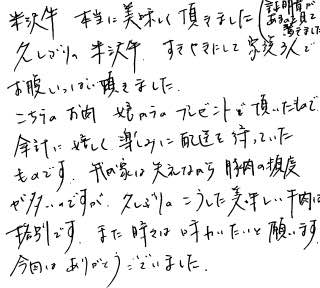 米沢牛 本当に美味しく頂きました(証明書が
あるの見て
驚きました
久しぶりの米沢牛. すきやきにして家族3人で
お腹いっぱい頂きました.
こちらのお肉 娘からのプレゼントで頂いたもので
余計に嬉しく楽しみに配送を待っていた
ものです. 我が家は失礼ながら豚肉の頻度
が多いのですが、久しぶりのこうした美味しい牛肉は
格別です. また時々は味わいたいと願います.
今回はありがとうございました.